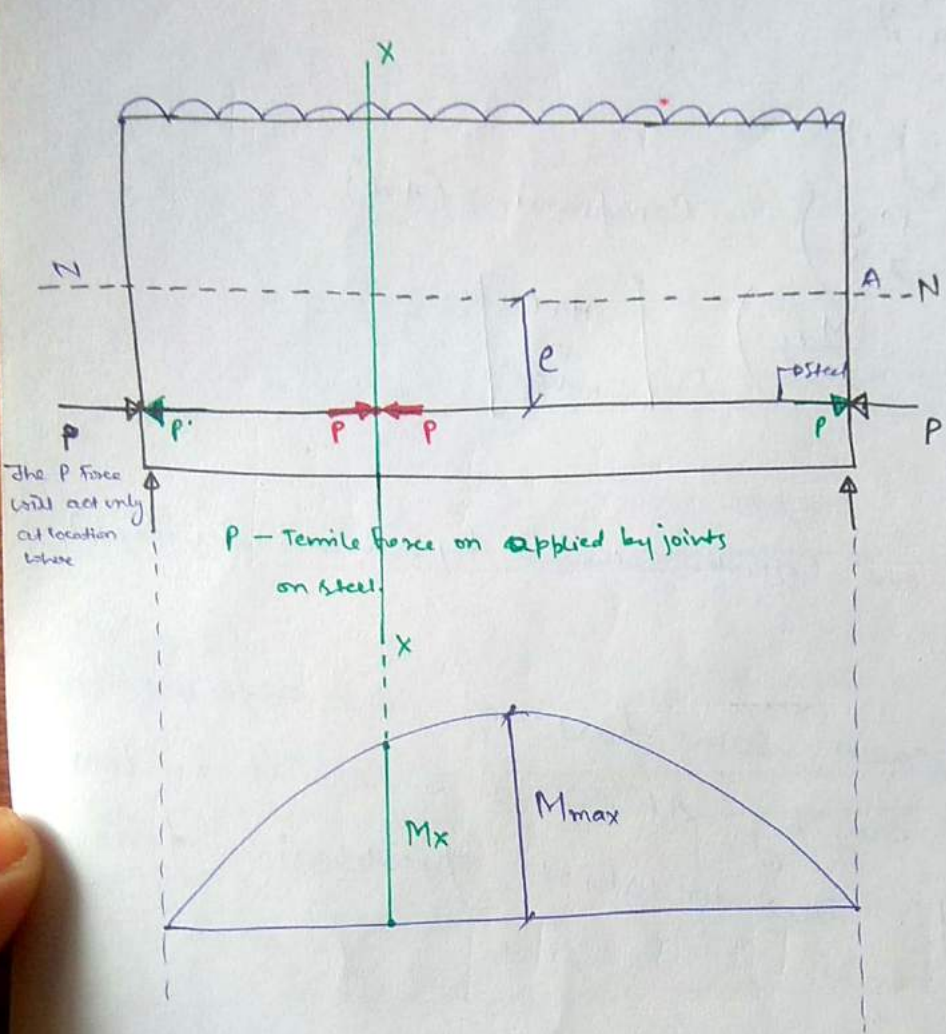 X
N
A
N
e
Steel
P
P
P
P
P
P
The P Force
will act only
at location
where
P - Temile force on applied by joints
on steel.
X
Mx
Mmax